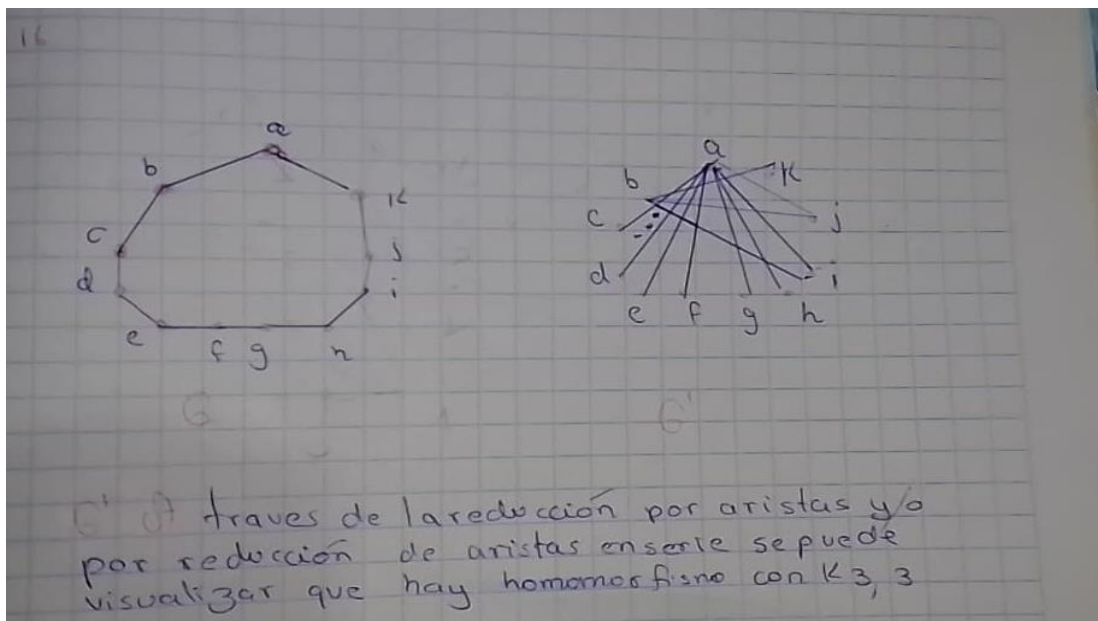 16
a
b
c
d
e
f g
h
i
j
K
G
a
b
c
d
e f g h
i
j
K
G'
G' A traves de la reducción por aristas y/o
por reducción de aristas en serie se puede
visualizar que hay homomorfismo con K3,3